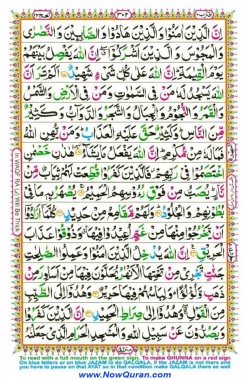 اِنَّ الَّذِيْنَ اٰمَنُوْا وَالَّذِيْنَ هَادُوْا وَالصَّابِـِٕيْنَ وَالنَّصٰرٰى
وَالْمَجُوْسَ وَالَّذِيْنَ اَشْرَكُوْۤا اِنَّ اللّٰهَ يَفْصِلُ بَيْنَهُمْ
يَوْمَ الْقِيٰمَةِ اِنَّ اللّٰهَ عَلٰى كُلِّ شَيْءٍ شَهِيْدٌ اَلَمْ تَرَ اَنَّ
اللّٰهَ يَسْجُدُ لَهٗ مَنْ فِي السَّمٰوٰتِ وَمَنْ فِي الْاَرْضِ وَالشَّمْسُ
وَالْقَمَرُ وَالنُّجُوْمُ وَالْجِبَالُ وَالشَّجَرُ وَالدَّوَآبُّ وَكَثِيْرٌ
مِّنَ النَّاسِ وَكَثِيْرٌ حَقَّ عَلَيْهِ الْعَذَابُ وَمَنْ يُّهِنِ اللّٰهُ
فَمَا لَهٗ مِنْ مُّكْرِمٍ اِنَّ اللّٰهَ يَفْعَلُ مَا يَشَآءُ هٰذٰنِ خَصْمٰنِ
اخْتَصَمُوْا فِيْ رَبِّهِمْ فَالَّذِيْنَ كَفَرُوْا قُطِّعَتْ لَهُمْ ثِيَابٌ مِّنْ
نَّارٍ يُصَبُّ مِنْ فَوْقِ رُءُوْسِهِمُ الْحَمِيْمُ يُصْهَرُ بِهٖ مَا فِيْ
بُطُوْنِهِمْ وَالْجُلُوْدُ وَلَهُمْ مَّقَامِعُ مِنْ حَدِيْدٍ كُلَّمَاۤ اَرَادُوْۤا
اَنْ يَّخْرُجُوْا مِنْهَا مِنْ غَمٍّ اُعِيْدُوْا فِيْهَا وَذُوْقُوْا عَذَابَ
الْحَرِيْقِ اِنَّ اللّٰهَ يُدْخِلُ الَّذِيْنَ اٰمَنُوْا وَعَمِلُوا الصّٰلِحٰتِ
جَنّٰتٍ تَجْرِيْ مِنْ تَحْتِهَا الْاَنْهٰرُ يُحَلَّوْنَ فِيْهَا مِنْ اَسَاوِرَ
مِنْ ذَهَبٍ وَّلُؤْلُؤًا وَلِبَاسُهُمْ فِيْهَا حَرِيْرٌ وَهُدُوْۤا اِلَى الطَّيِّبِ
مِنَ الْقَوْلِ وَهُدُوْۤا اِلٰى صِرَاطِ الْحَمِيْدِ اِنَّ الَّذِيْنَ كَفَرُوْا
وَيَصُدُّوْنَ عَنْ سَبِيْلِ اللّٰهِ وَالْمَسْجِدِ الْحَرَامِ الَّذِيْ
To read with a full mouth on the green sign, To make GHUNNA on a red sign
On blue letters or on blue JAZAM to do QALQALA, if the JAZAM is not there and
you have to pause on that AYAT so in that condition make QALQALA there as well
www.NowQuran.com